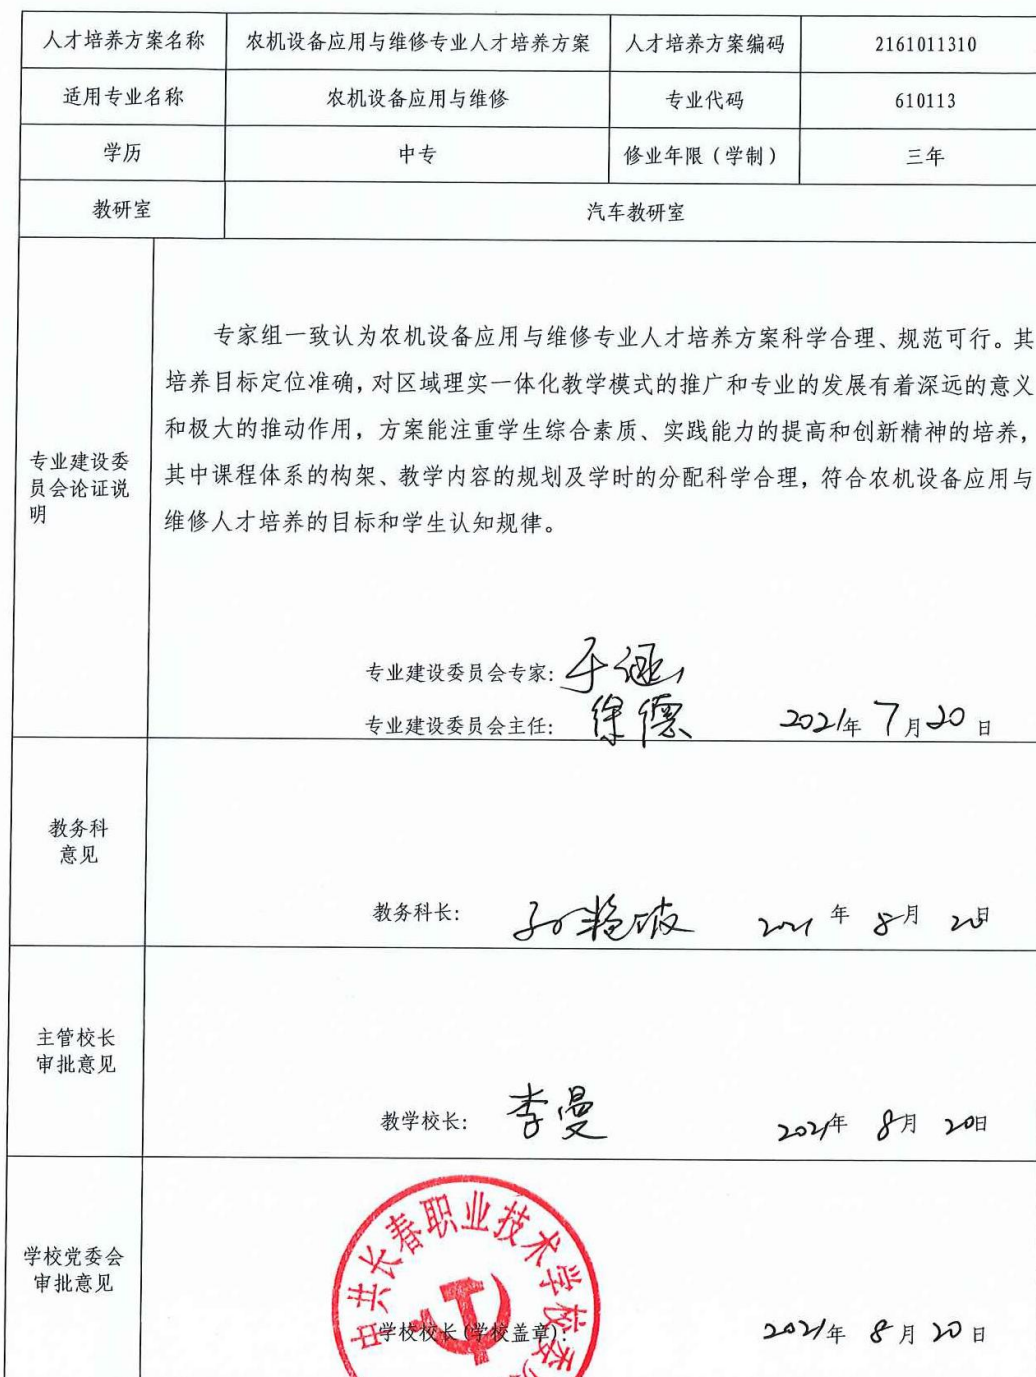 人才培养方案名称 农机设备应用与维修专业人才培养方案 人才培养方案编码 2161011310
适用专业名称 农机设备应用与维修 专业代码 610113
学历 中专 修业年限（学制） 三年
教研室 汽车教研室
专业建设委
员会论证说
明
专家组一致认为农机设备应用与维修专业人才培养方案科学合理、规范可行。其
培养目标定位准确，对区域理实一体化教学模式的推广和专业的发展有着深远的意义
和极大的推动作用，方案能注重学生综合素质、实践能力的提高和创新精神的培养，
其中课程体系的构架、教学内容的规划及学时的分配科学合理，符合农机设备应用与
维修人才培养的目标和学生认知规律。
专业建设委员会专家：
专业建设委员会主任：徐德 2021年 7月20日
教务科
意见
教务科长： 2021年 8月 20日
主管校长
审批意见
教学校长：李曼 2021年 8月 20日
学校党委会
审批意见
中共长春职业技术学校委
学校校长（学校盖章）： 2021年 8月20日